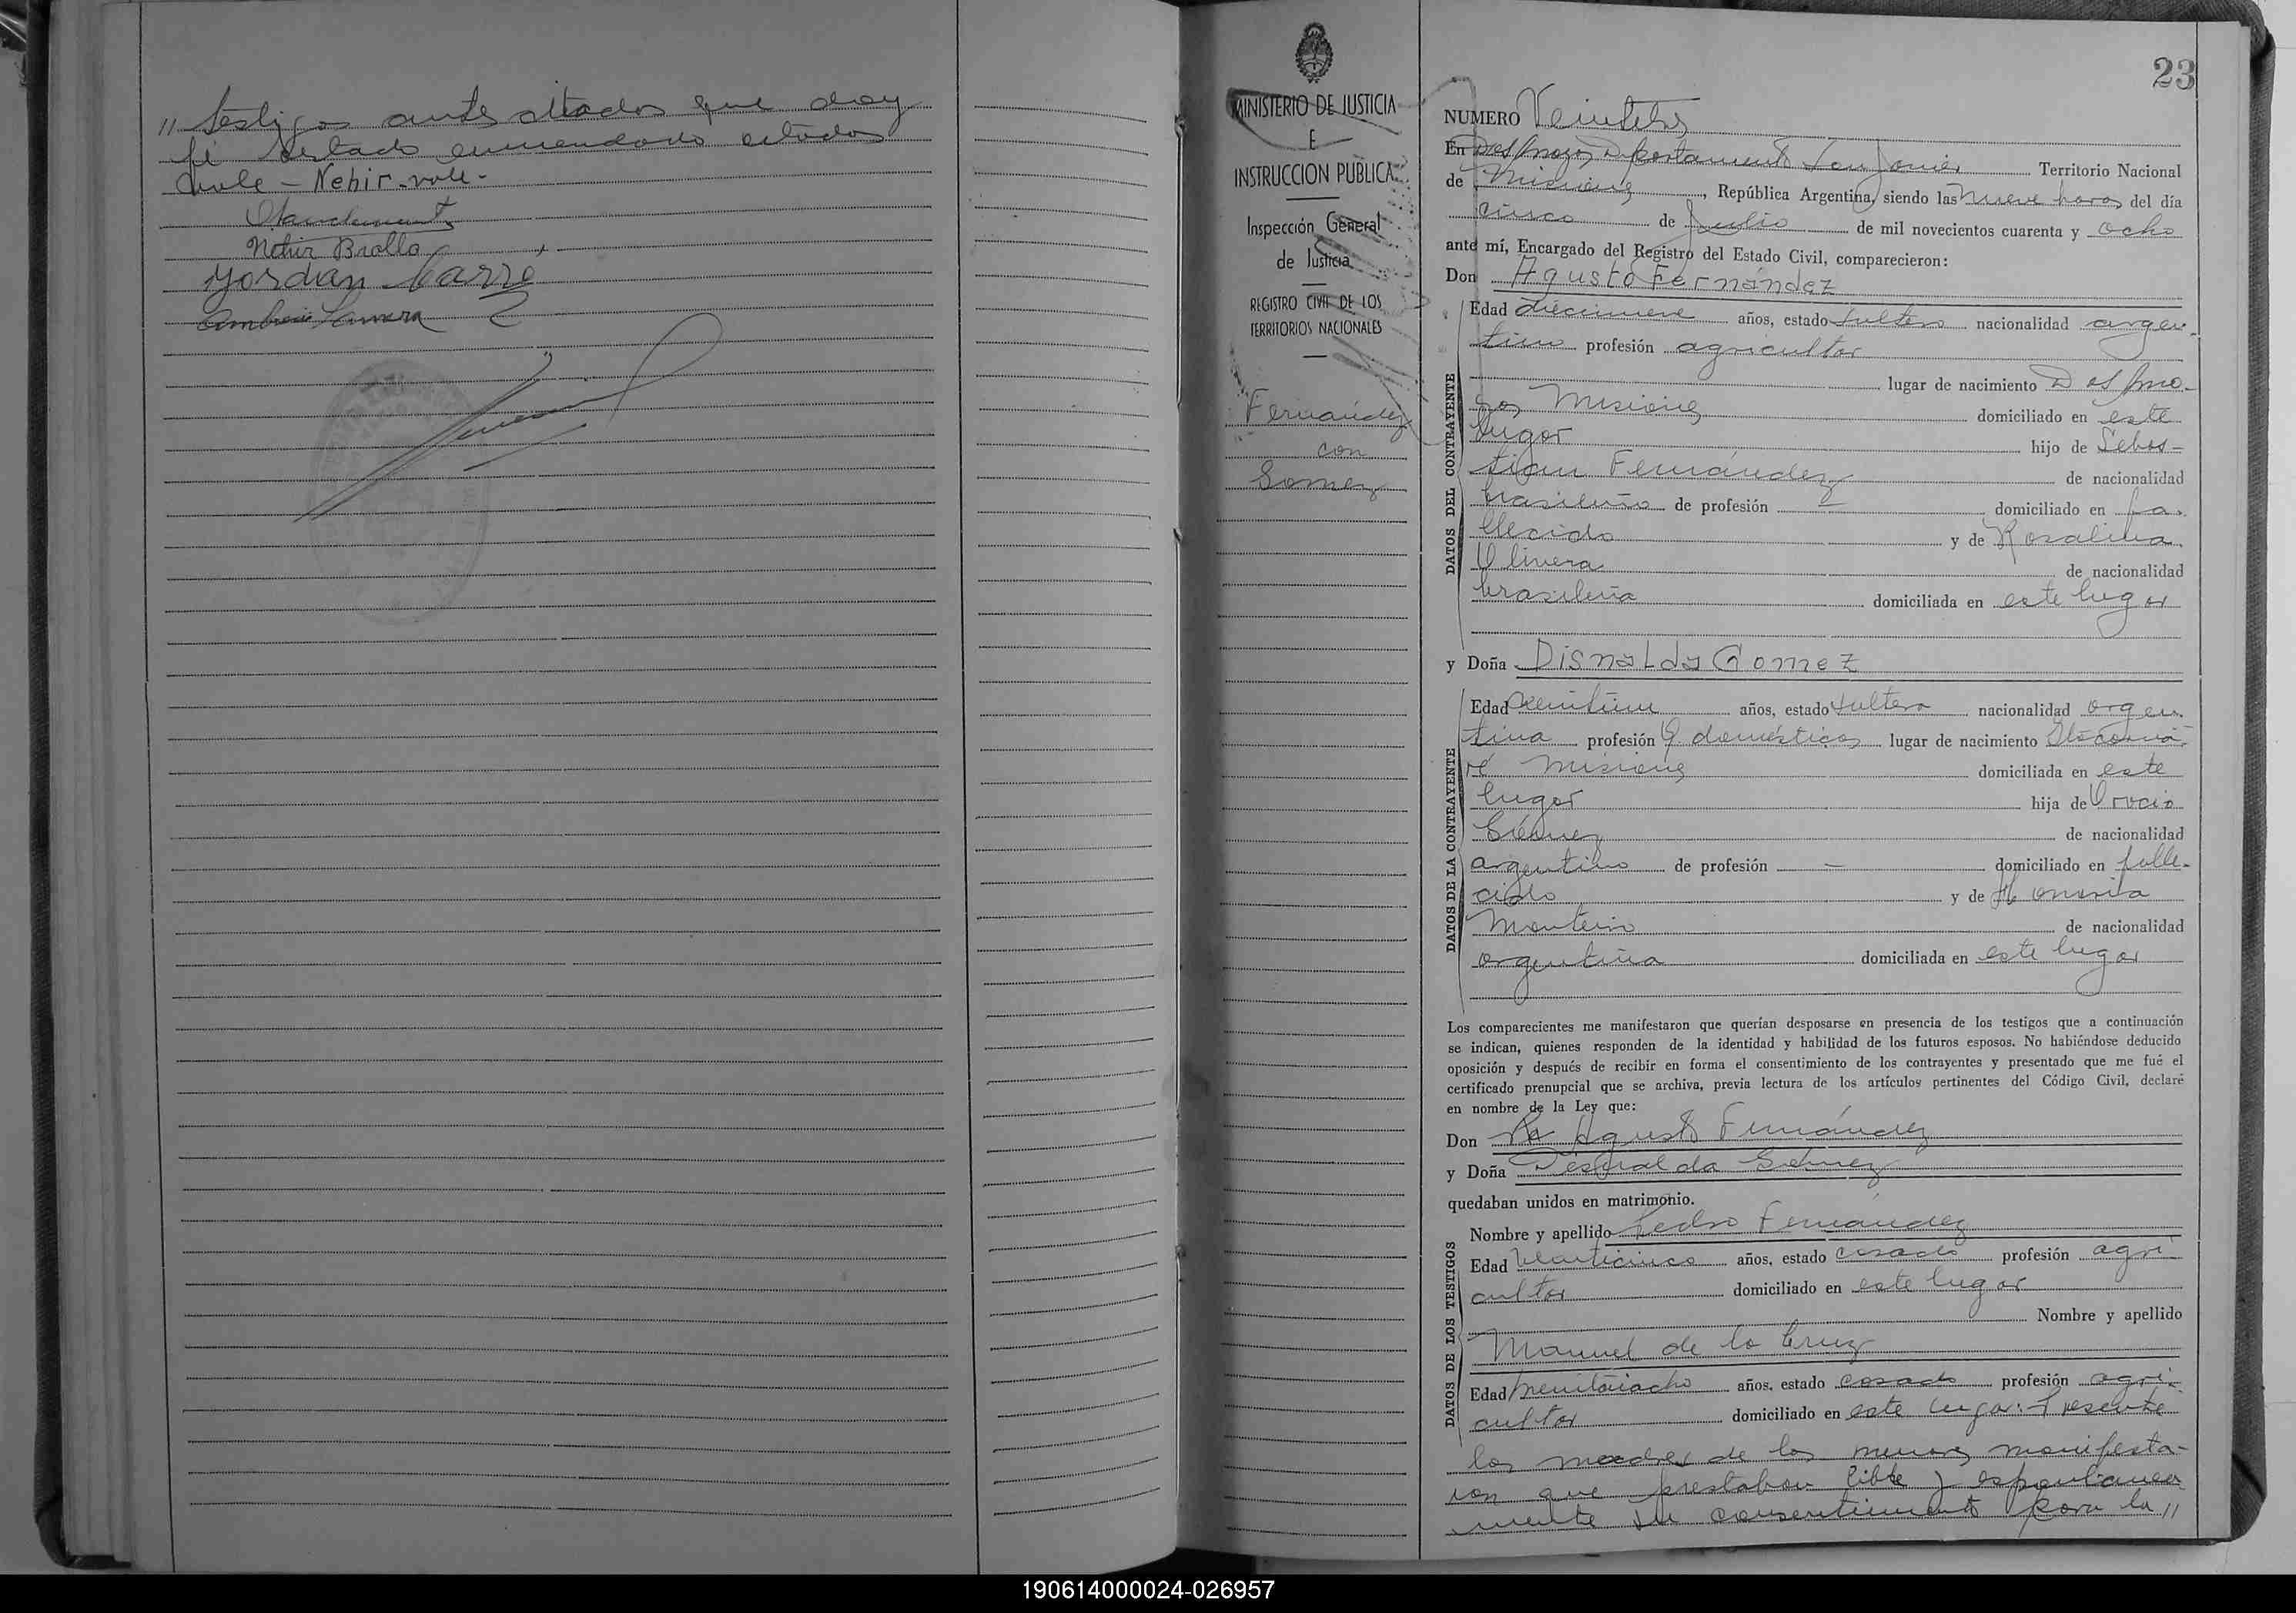 " testigos antes citados que doy
fé testado enmendado estados
vale - Nehir - vale -
Nehir Brollo
Ambrosio
23
MINISTERIO DE JUSTICIA
E
INSTRUCCION PUBLICA
Inspección General
de Justicia
REGISTRO CIVIL DE LOS
TERRITORIOS NACIONALES
Fernández
con
Gomez
NUMERO Veintitrés
En Departamento San Javier Territorio Nacional
de Misiones, República Argentina, siendo las nueve horas del día
cinco de Julio de mil novecientos cuarenta y ocho
ante mí, Encargado del Registro del Estado Civil, comparecieron:
Don Agusto Fernández
DATOS DEL CONTRAYENTE
Edad diecinueve años, estado soltero nacionalidad argen-
tino profesión agricultor
lugar de nacimiento
Misiones domiciliado en este
lugar hijo de Sebas-
tian Fernández de nacionalidad
brasileño de profesión — domiciliado en fa-
llecido y de Rosalina
Olivera de nacionalidad
brasileña domiciliada en este lugar
y Doña Disnalda Gomez
DATOS DE LA CONTRAYENTE
Edad años, estado soltera nacionalidad argen-
tina profesión Q. domésticos lugar de nacimiento
ré Misiones domiciliada en este
lugar hija de Orocio
Gómez de nacionalidad
argentino de profesión — domiciliado en falle-
cido y de
Monteiro de nacionalidad
argentina domiciliada en este lugar
Los comparecientes me manifestaron que querían desposarse en presencia de los testigos que a continuación
se indican, quienes responden de la identidad y habilidad de los futuros esposos. No habiéndose deducido
oposición y después de recibir en forma el consentimiento de los contrayentes y presentado que me fué el
certificado prenupcial que se archiva, previa lectura de los artículos pertinentes del Código Civil, declaré
en nombre de la Ley que:
Don Agusto Fernández
y Doña Gómez
quedaban unidos en matrimonio.
DATOS DE LOS TESTIGOS
Nombre y apellido Pedro Fernández
Edad veinticinco años, estado casado profesión agri
cultor domiciliado en este lugar
Nombre y apellido
Manuel de la Cruz
Edad años, estado casado profesión agri-
cultor domiciliado en este lugar: Presente
las madres de los menores manifesta-
ron que prestaban libre y espontanea
mente su consentimiento para la "
190614000024-026957